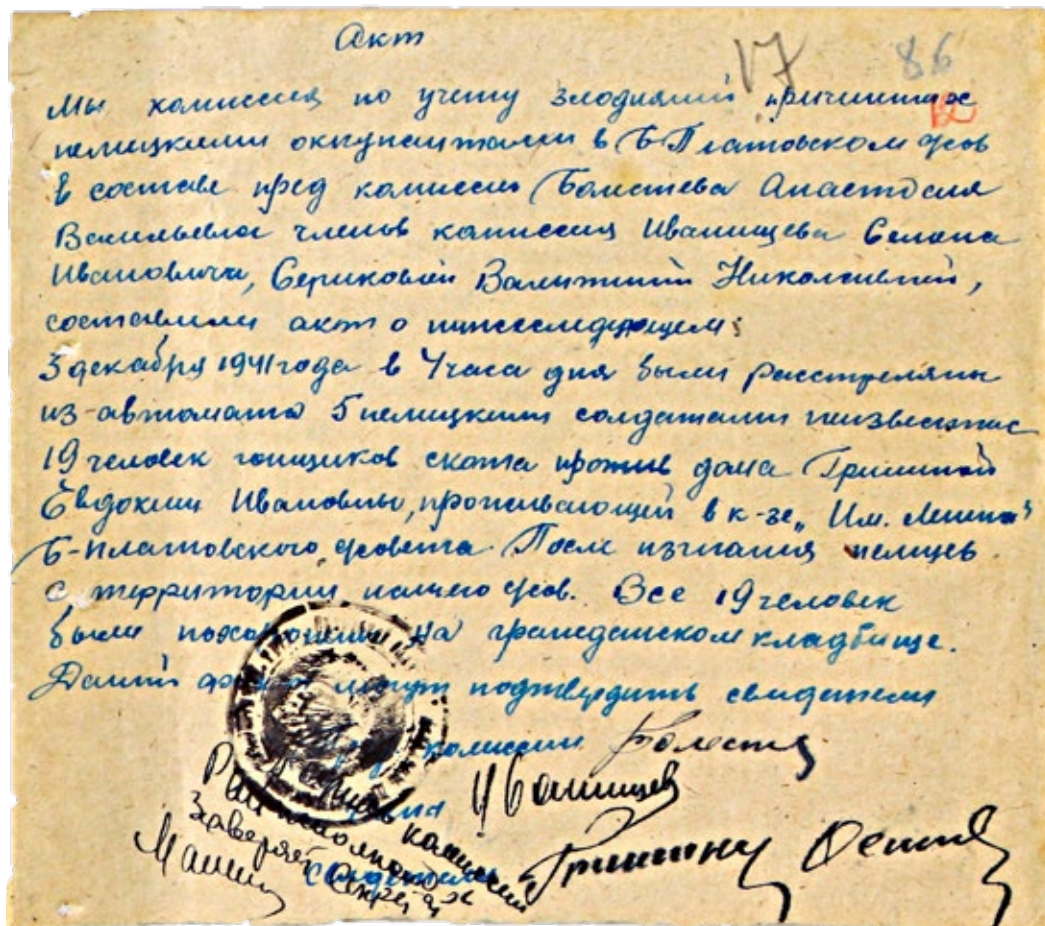 Акт
17 86
12
Мы комиссия по учету злодияний причиних
немецкими оккупантами в Б Платовском с/сов
в составе пред комиссии Болотева Анастосия
Васильевна членов комиссия Иванищева Семена
Ивановича, Сериковой Валитиной Николаивной,
составили акт о нижеследующем:
3 декабря 1941 года в 4 часа дня были расстреляны
из-автомата 5 немецкими солдатами неизвестные
19 человек гонщиков скота против дома Гришиной
Евдокии Ивановны, проживающей в к-зе „Им. Ленина"
Б-Платовского с/совета. После изгнания немцев
с территории нашего с/сов. Все 19 человек
были похоронены на гражданском кладбище.
Данный могут подтвердить свидетели
комиссии
Иванищев
комиссии
Заверяет Секрет
свидетели